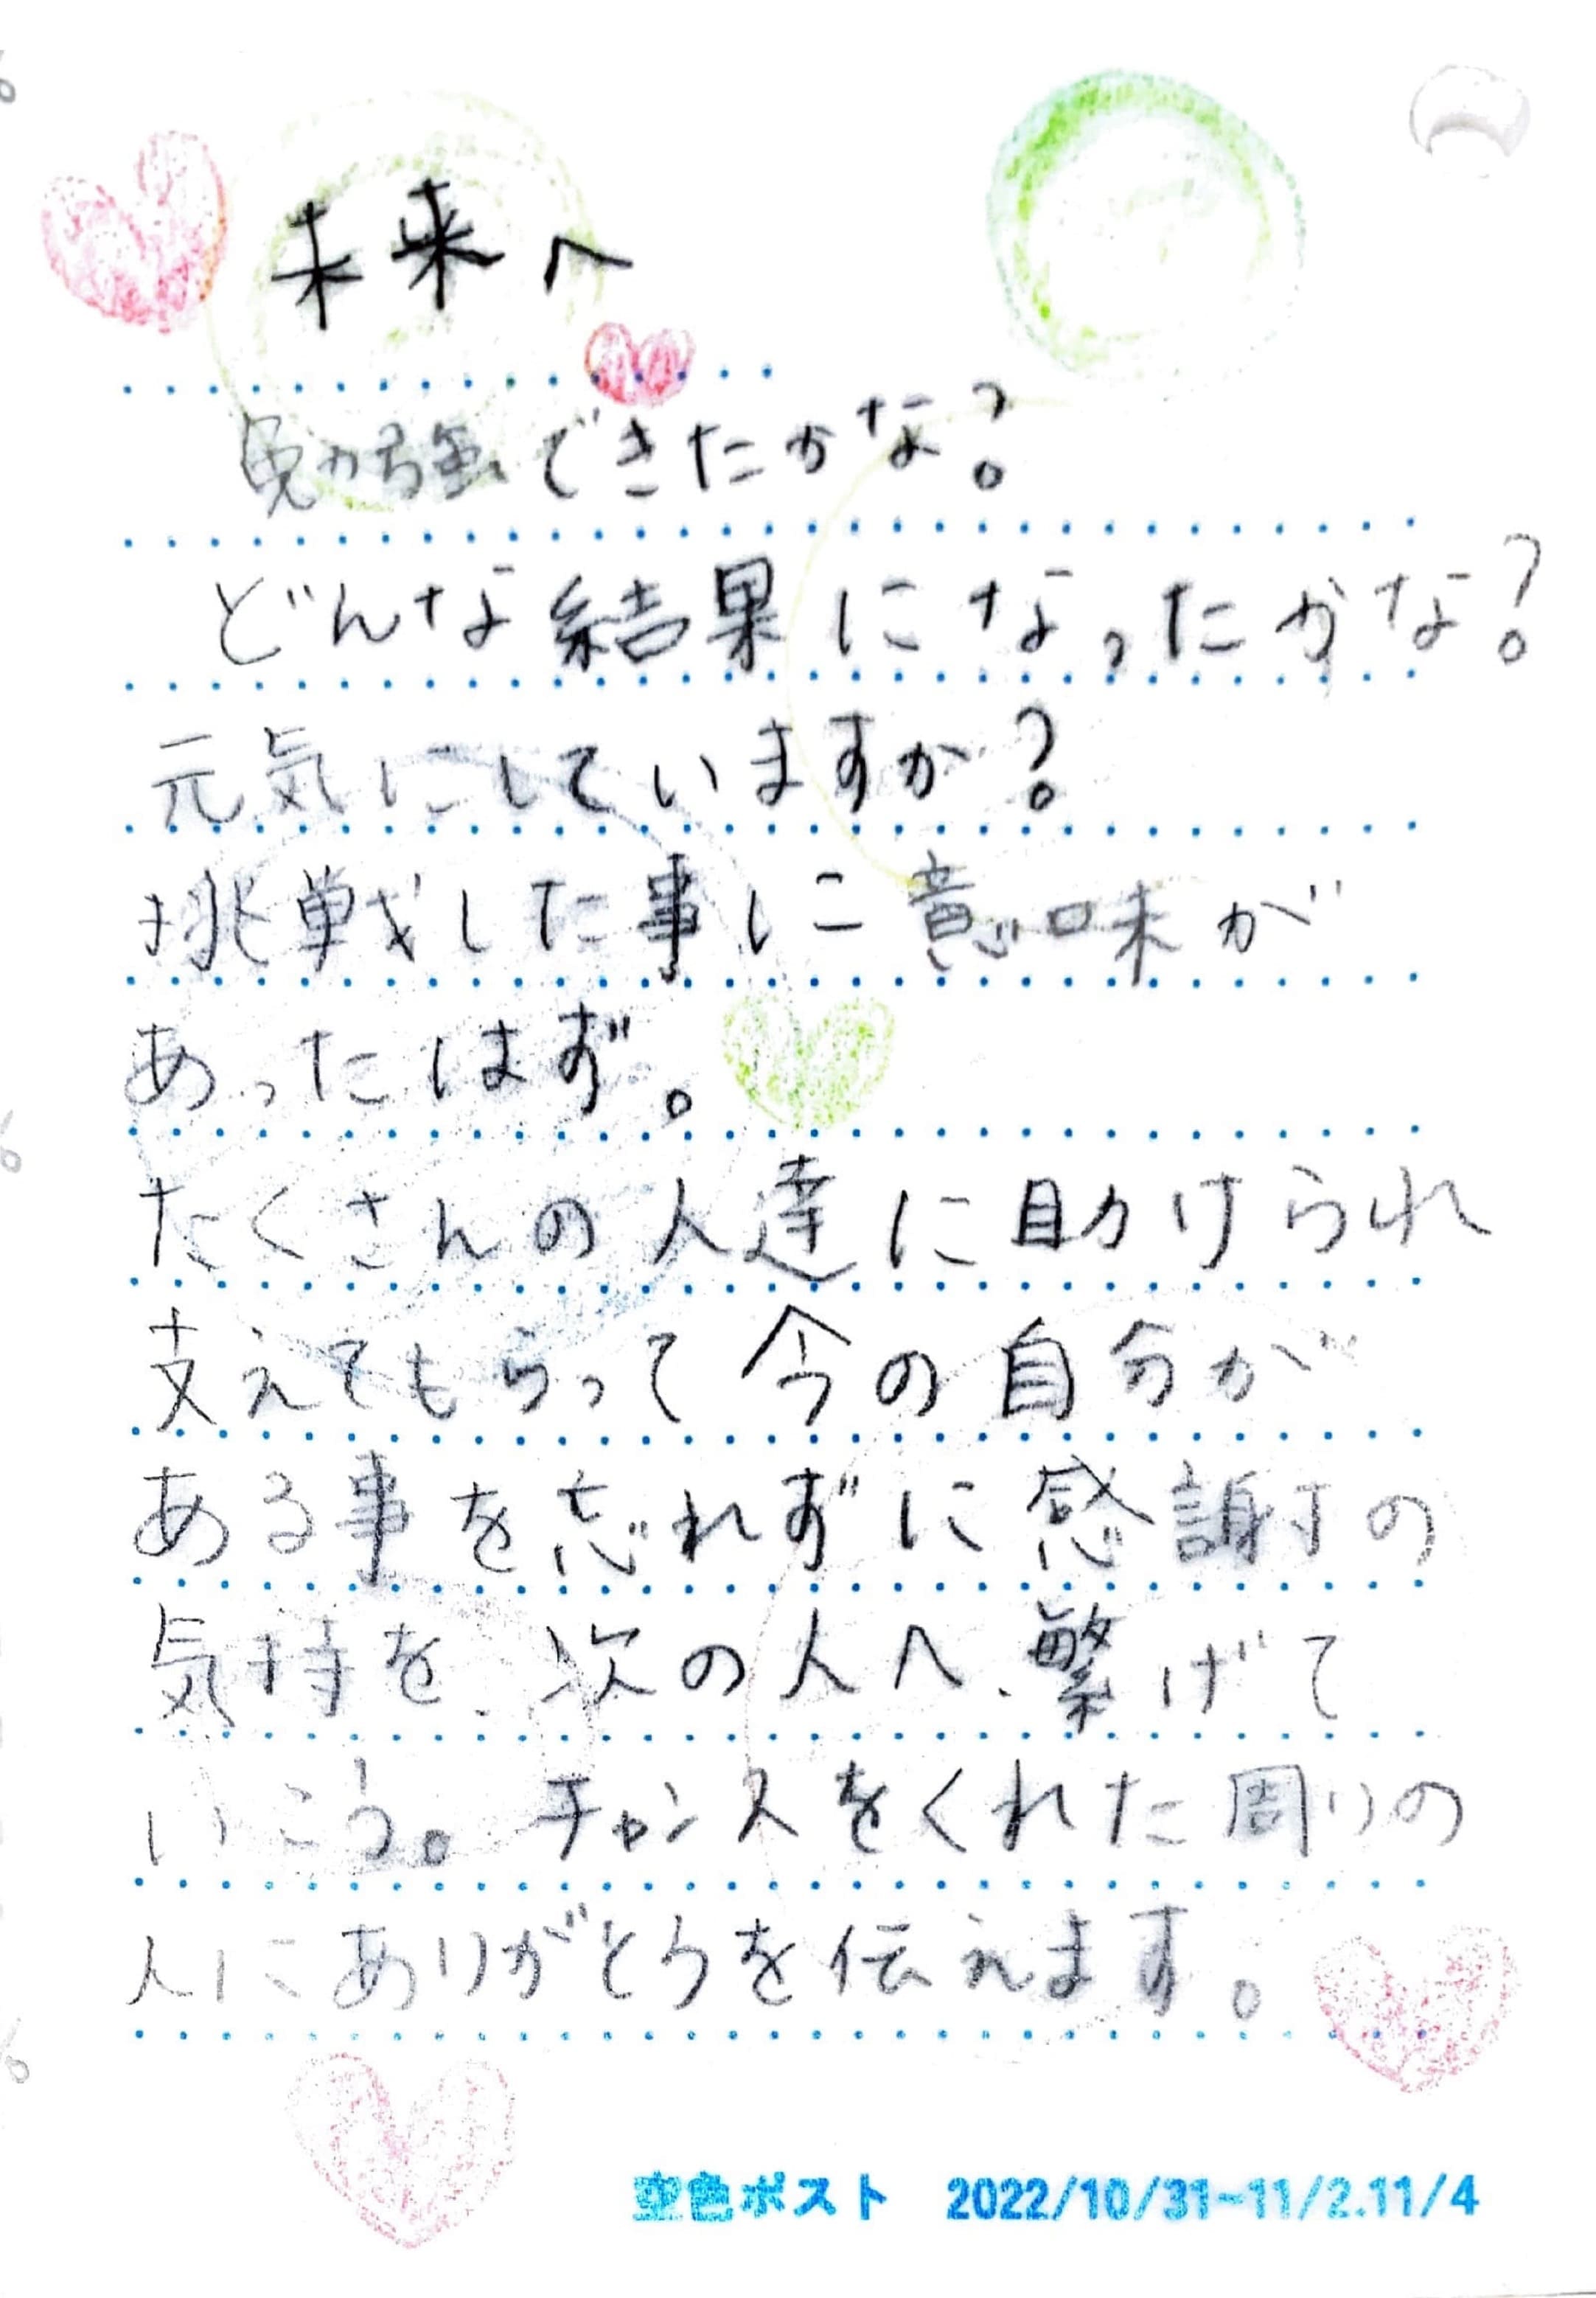 未来へ
勉強できたかな?
どんな結果になったかな?
元気にしていますか?
挑戦した事に意味が
あったはず。
たくさんの人達に助けられ
支えてもらって今の自分が
ある事を忘れずに感謝の
気持を、次の人へ、繋げて
いこう。チャンスをくれた周りの
人にありがとうを伝えます。
空色ポスト 2022/10/31-11/2.11/4